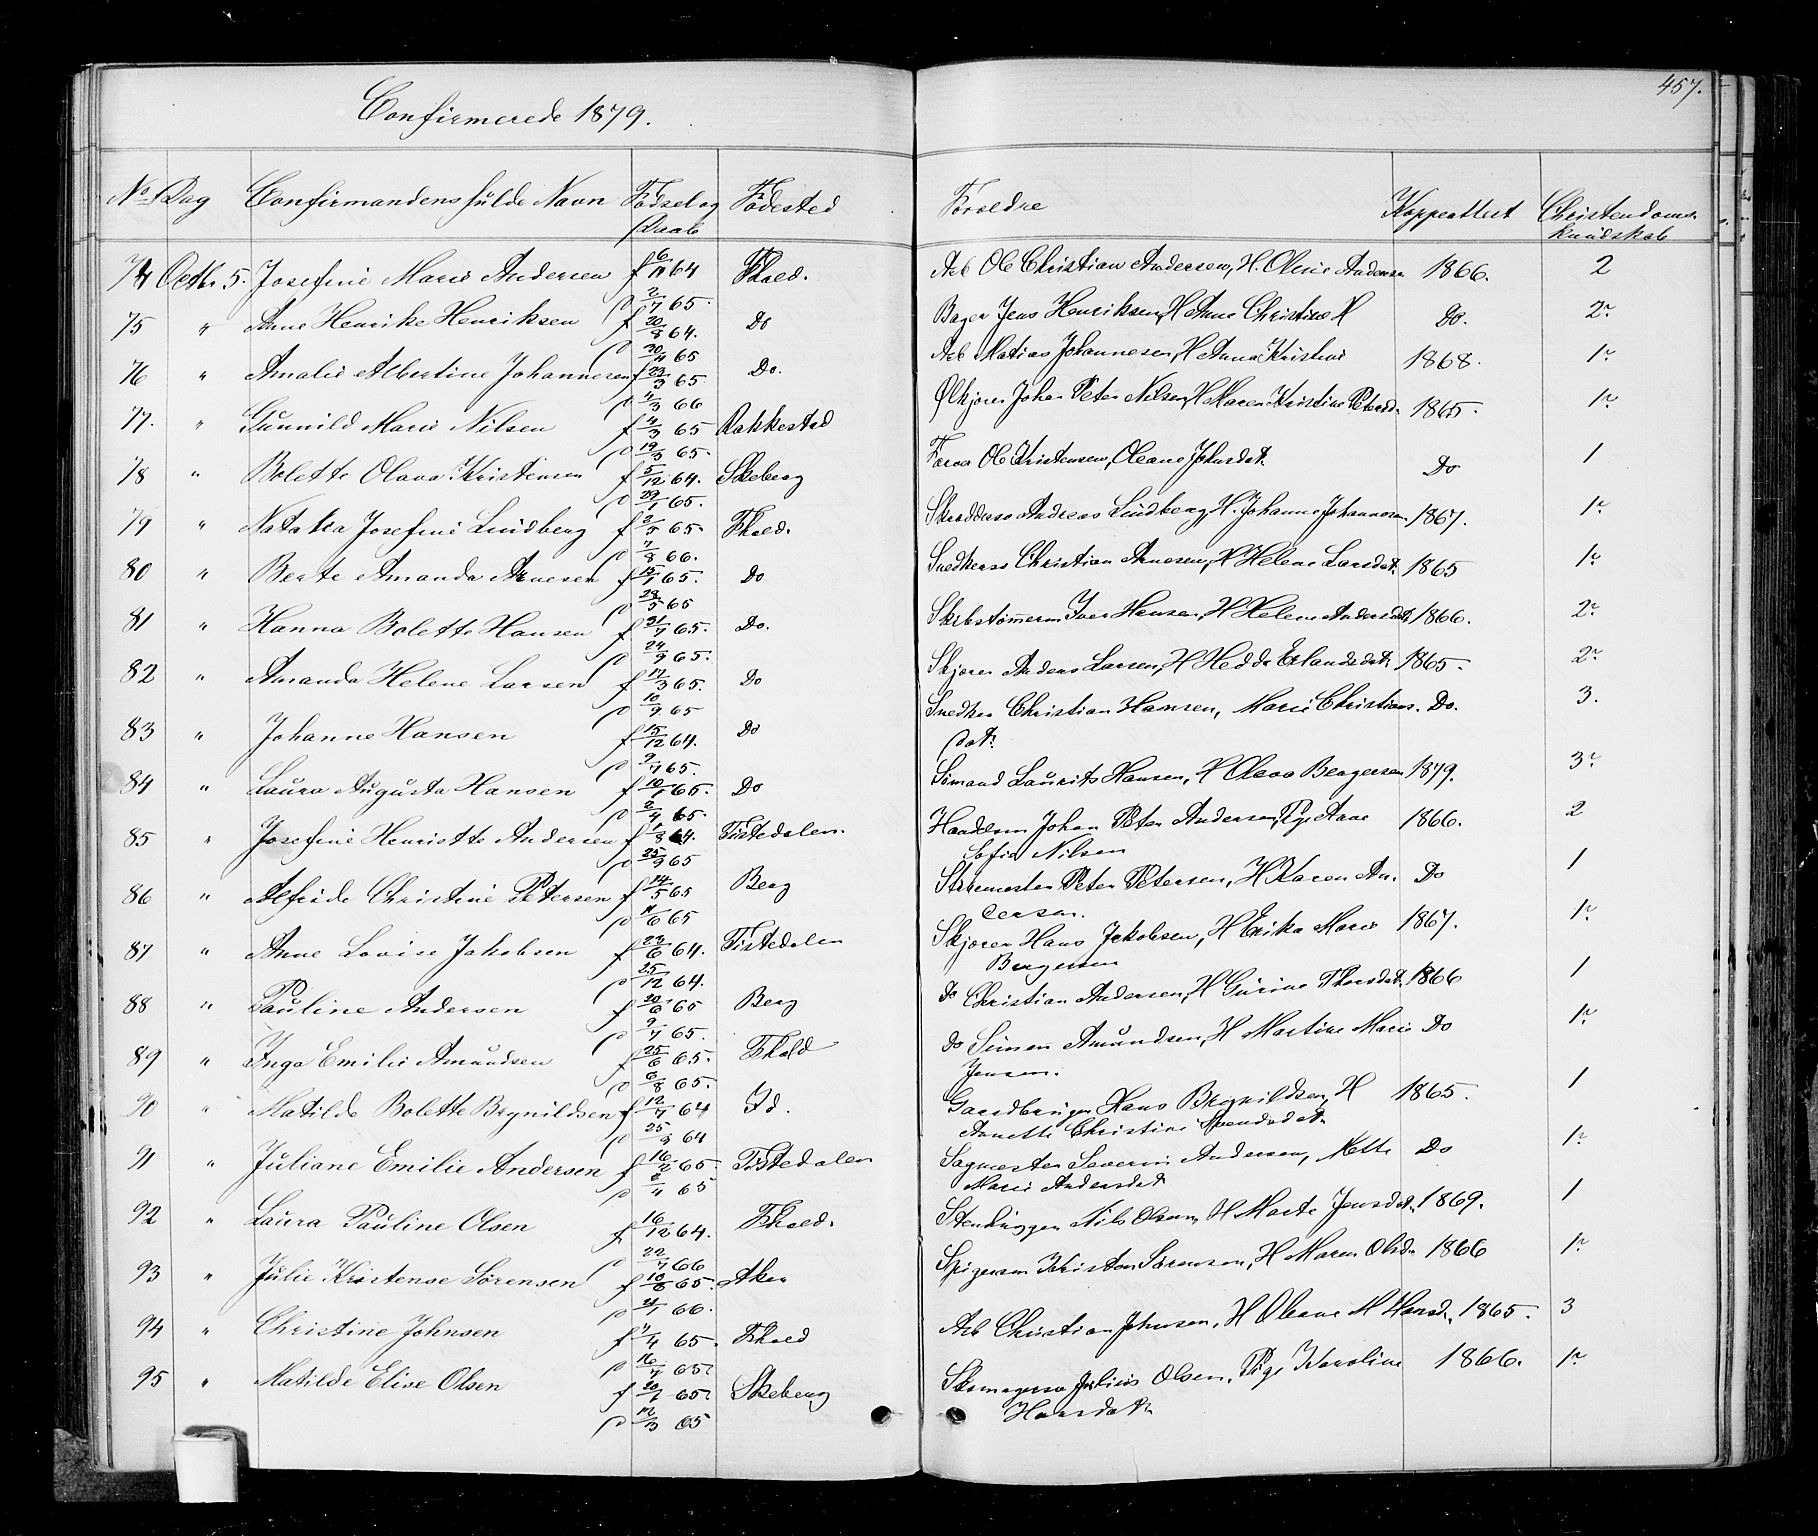 457.
Confirmerede 1879.
No Dag Confirmandens fulde Navn Fødsel og Daab Fødested Forældre Koppeattest Christendoms kundskab
74 Octbr 5. Josefine Marie Andersen f 6/11 64 Fhald. Arb Ole Christian Andersen, H. Oline Andersen 1866. 2
d 2/7 65.
75 " Anne Henrike Henriksen f 20/8 64. Do Bager Jens Henriksen, H Anne Christine H Do. 2
d 30/4 65
76 " Amalie Albertine Johannesen f 23/3 65 Do. Arb Matias Johannesen, H Anna Kristine 1868. 1
d 4/3 66
77. " Gunnild Marie Nilsen f 4/3 65 Rakkestad Ølkjører Johan Peter Nilsen, H Maren Kristine Petersd. 1865. 1
d 19/3 65.
78 " Bolette Olava Kristensen f 5/12 64. Skeberg Farver Ole Kristensen, Oleane Johnsdat. Do 1
d 29/1 65.
79 " Natalia Josefine Lindberg f 2/5 65 Fhald. Skrædders Andreas Lindberg, H. Johanne Johannesen 1867. 1
d 4/8 66.
80 " Berte Amanda Arnesen f 15/1 65. Do Snedkers Christian Arnesen, H Helene Larsdat. 1865 1
d 28/5 65
81 " Hanna Bolette Hansen f 31/7 65. Do. Skibstømmerm Iver Hansen, H Helene Andersdat. 1866. 2
d 24/9 65.
82 " Amanda Helene Larsen f 17/3 65. Do Skjører Anders Larsen, H Hedda Erlandsdat. 1865. 2
d 10/9 65
83 " Johanne Hansen f 15/12 64. Do Snedker Christian Hansen, Marie Christians. Do. 3.
dat.
d 9/4 65.
84 " Laura Augusta Hansen f 10/1 65. Do Sømand Laurits Hansen, H Oleva Bergersen 1879. 3
d 2/4 65
85 " Josefine Henriette Andersen f 1/8 64. Tistedalen. Handelsm Johan Peter Andersen, Pige Aane 1866. 2
Sofie Nilsen
d 25/9 65
86 " Alfride Christine Petersen f 14/5 65 Berg Peter Petersen, H Karen An. Do 1
dersen.
d 11/6 65
87 " Anne Lovise Jakobsen f 22/6 64. Tistedalen Skjører Hans Jakobsen, H Erika Marie 1867. 1
Bergersen
d 25/12 64.
88 " Pauline Andersen f 20/6 65 Berg do Christian Andersen, H Gurine Thorsdat. 1866 1
d 9/7 65.
89 " Inga Emilie Amundsen f 25/6 65. Fhald do Simen Amundsen, H Martine Marie Do 1
Jensen.
d 6/8 65.
90 " Matilde Bolette Brynildsen f 12/7 64 Id. Gaardbruger Hans Brynildsen, H 1865. 1
Annette Christine Svendsdat.
d 25/9 64
91 " Juliane Emilie Andersen f 16/2 65. Tistedalen Sagmester Severin Andersen, Mette Do 1
Marie Andersdat
d 2/4 65
92 " Laura Pauline Olsen f 16/12 64. Fhald. Stenhugger Nils Olsen, H Marte Jensdat. 1869. 1
d 22/7 66
93 " Julie Kristense Sørensen f 10/6 65. Aker Kristen Sørensen, H Maren Olsd. 1866 1
d 21/1 66.
94 " Christine Johnsen f 4/4 65. Fhald Arb Christian Johnsen, H Oleane M Hansd. 1865. 3
d 16/7 65
95 " Matilde Elise Olsen f 20/1 65 Skeberg Skomagers Julius Olsen, Pige Karoline 1866. 1
Hansdat.
d 12/3 65